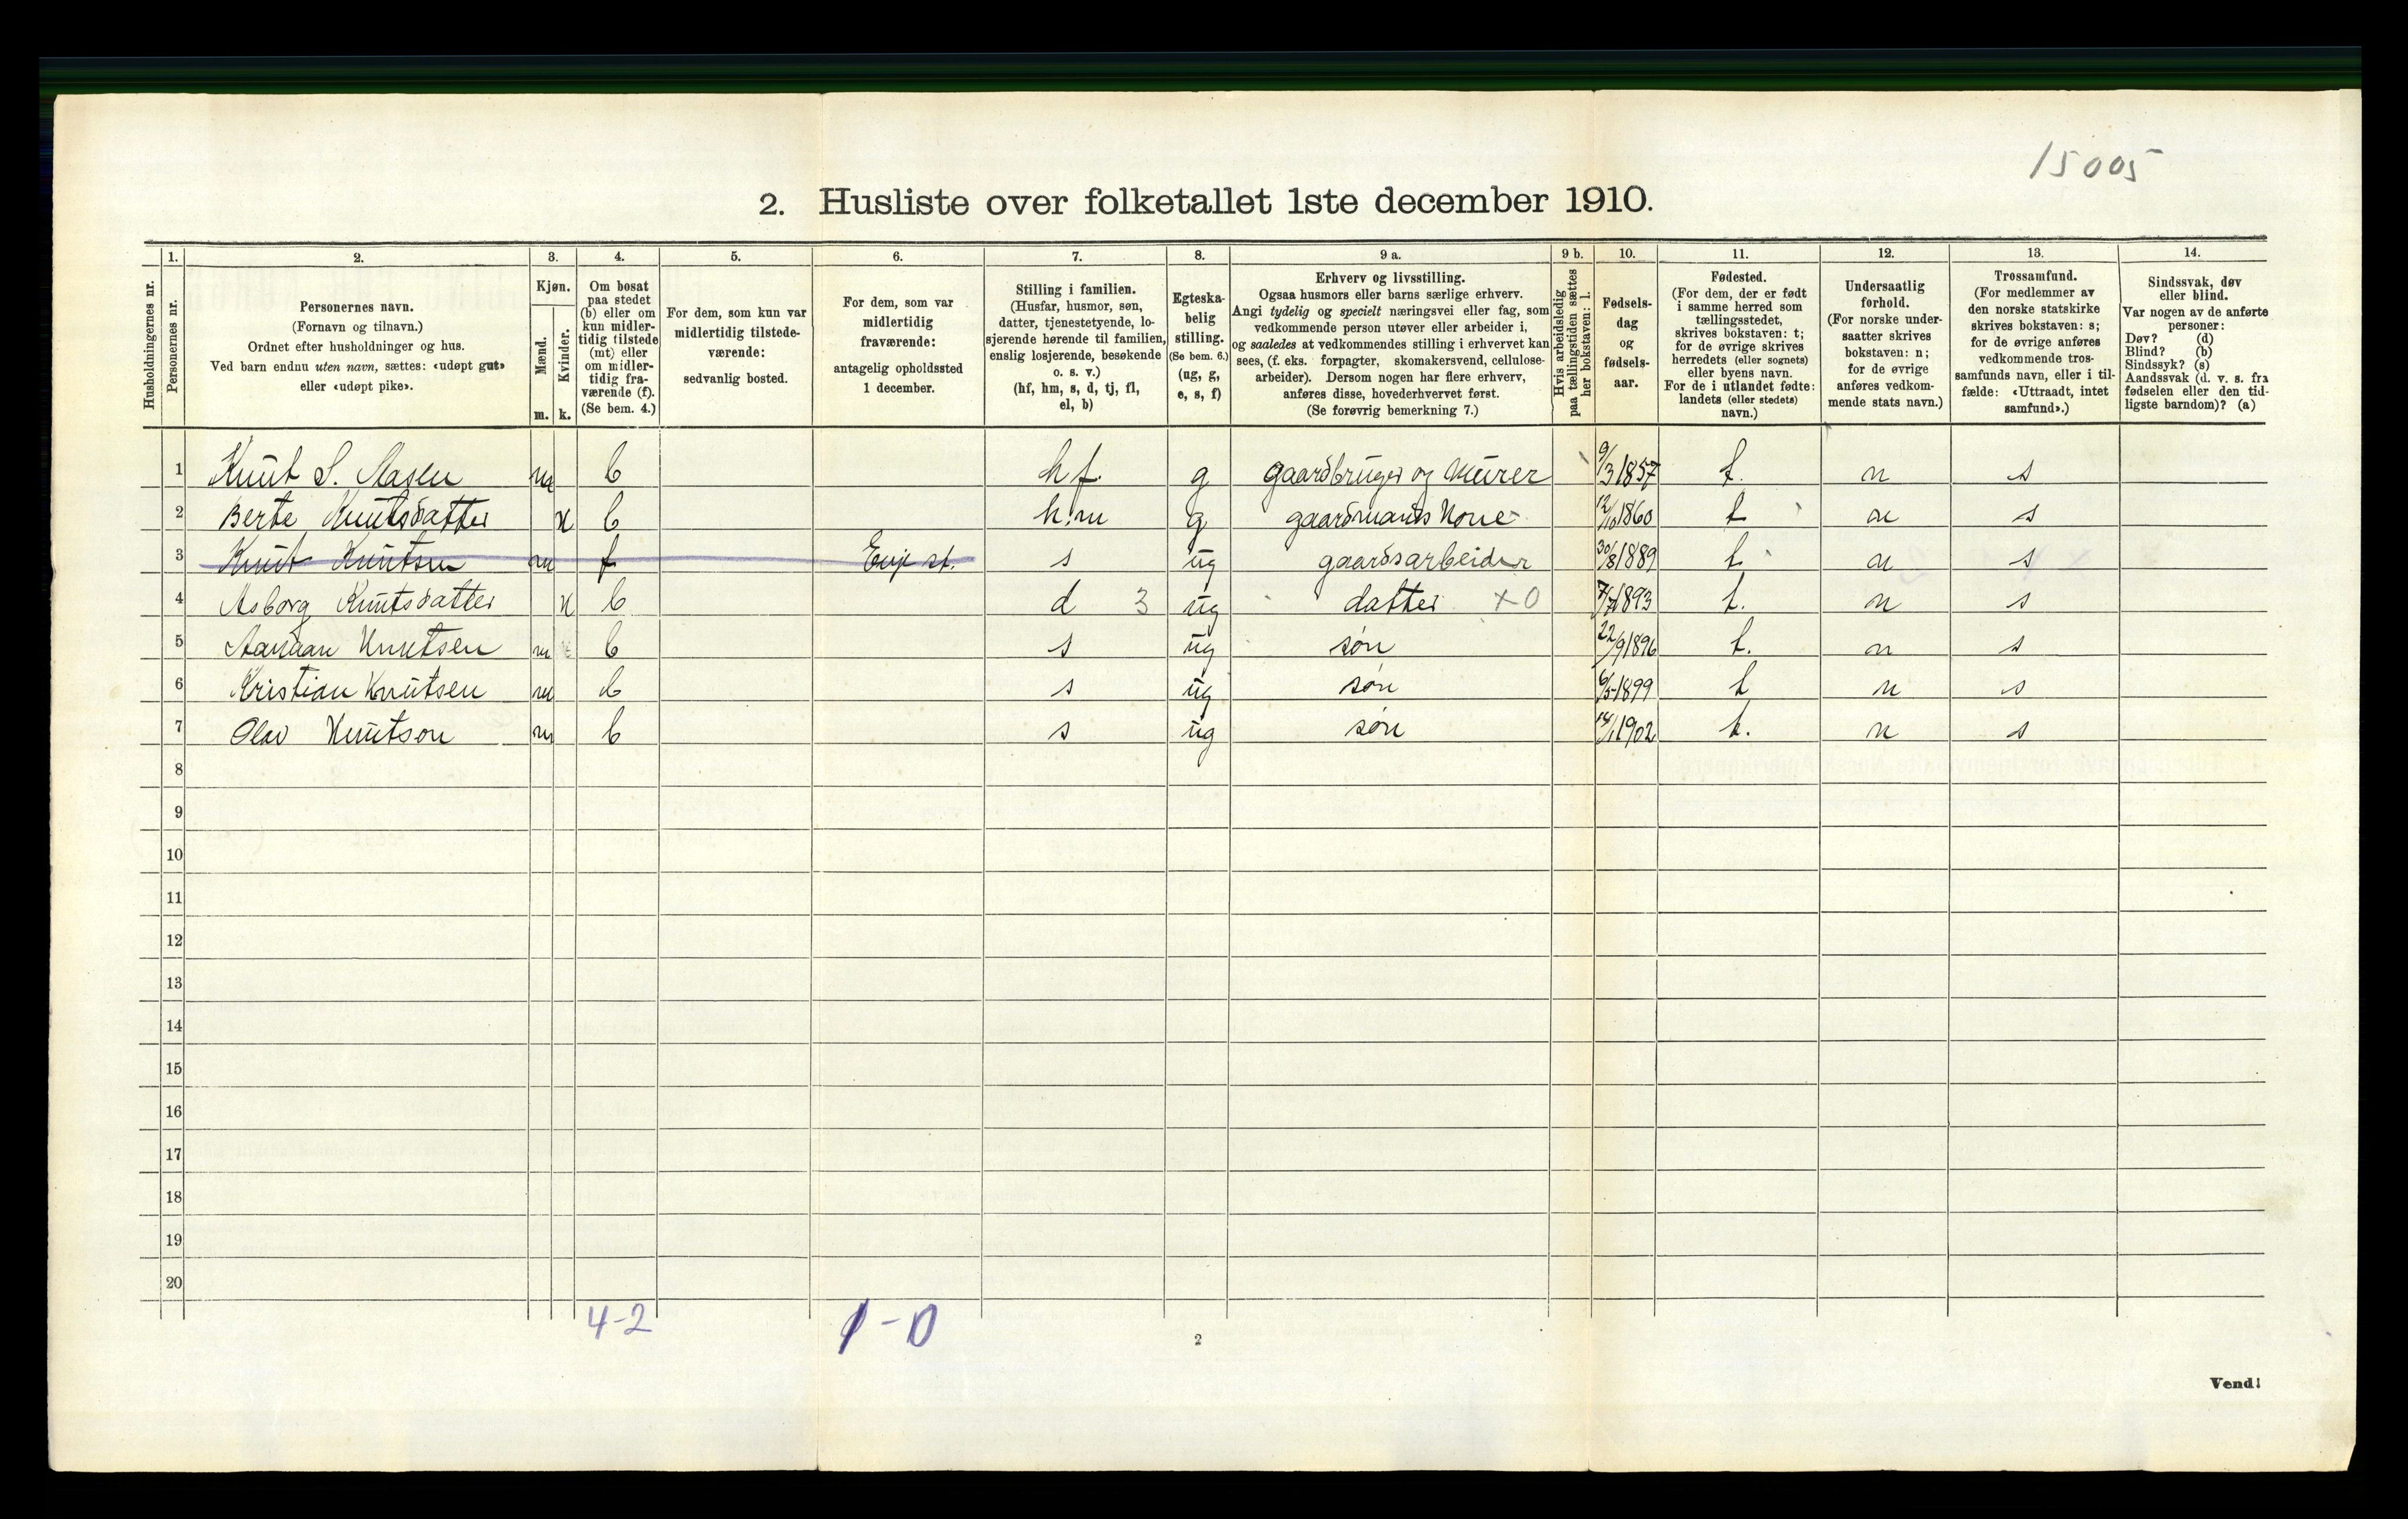 15005
2. Husliste over folketallet 1ste december 1910.
Husholdningernes nr.
1.
Personernes nr.
2.
Personernes navn.
(Fornavn og tilnavn.)
Ordnet efter husholdninger og hus.
Ved barn endnu uten navn, sættes: «udøpt gut»
eller «udøpt pike».
3.
Kjøn.
Mænd.
m.
Kvinder.
k.
4.
Om bosat
paa stedet
(b) eller om
kun midler-
tidig tilstede
(mt) eller
om midler-
tidig fra-
værende (f).
(Se bem. 4.)
5.
For dem, som kun var
midlertidig tilstede-
værende:
sedvanlig bosted.
6.
For dem, som var
midlertidig
fraværende:
antagelig opholdssted
1 december.
7.
Stilling i familien.
(Husfar, husmor, søn,
datter, tjenestetyende, lo-
sjerende hørende til familien,
enslig losjerende, besøkende
o. s. v.)
(hf, hm, s, d, tj, fl,
el, b)
8.
Egteska-
belig
stilling.
(Se bem. 6.)
(ug, g,
e, s, f)
9 a.
Erhverv og livsstilling.
Ogsaa husmors eller barns særlige erhverv.
Angi tydelig og specielt næringsvei eller fag, som
vedkommende person utøver eller arbeider i,
og saaledes at vedkommendes stilling i erhvervet kan
sees, (f. eks. forpagter, skomakersvend, cellulose-
arbeider). Dersom nogen har flere erhverv,
anføres disse, hovederhvervet først.
(Se forøvrig bemerkning 7.)
9 b.
Hvis arbeidsledig
paa tællingstiden sættes
her bokstaven: l.
10.
Fødsels-
dag
og
fødsels-
aar.
11.
Fødested.
(For dem, der er født
i samme herred som
tællingsstedet,
skrives bokstaven: t;
for de øvrige skrives
herredets (eller sognets)
eller byens navn.
For de i utlandet fødte:
landets (eller stedets)
navn.)
12.
Undersaatlig
forhold.
(For norske under-
saatter skrives
bokstaven: n;
for de øvrige
anføres vedkom-
mende stats navn.)
13.
Trossamfund.
(For medlemmer av
den norske statskirke
skrives bokstaven: s;
for de øvrige anføres
vedkommende tros-
samfunds navn, eller i til-
fælde: «Uttraadt, intet
samfund».)
14.
Sindssvak, døv
eller blind.
Var nogen av de anførte
personer:
Døv? (d)
Blind? (b)
Sindssyk? (s)
Aandssvak (d. v. s. fra
fødselen eller den tid-
ligste barndom)? (a)
1 Knut S. Aasen m b hf. g gaardbruger og Murer 9/3 1857 t. n s
2 Berte Knutsdatter k b h.m g gaardmands Kone 12/10 1860 t n s
3 Knut Knutsen m f st. s ug gaardsarbeider 30/8 1889 t n s
4 Asborg Knutsdatter k b d 3 ug datter x0 7/7 1893 t. n s
5 Knutsen m b s ug søn 22/9 1896 t. n s
6 Kristian Knutsen m b s ug søn 6/5 1899 t n s
7 Olav Knutson m b s ug søn 14/1 1902 t. n s
8
9
10
11
12
13
14
15
16
17
18
19
20
4-2 1-0
2
Vend!